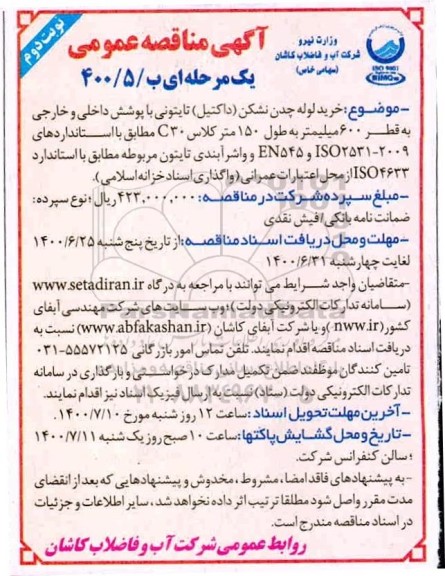 نوبت دوم
آگهی مناقصه عمومی
یک مرحله‌ای ب/۴۰۰/۵
وزارت نیرو
شرکت آب و فاضلاب کاشان
(سهامی خاص)
ISO 9001
-موضوع: خرید لوله چدن نشکن (داکتیل) تایتونی با پوشش داخلی و خارجی
به قطر ۶۰۰ میلیمتر به طول ۱۵۰ متر کلاس C۳۰ مطابق با استانداردهای
ISO۲۵۳۱-۲۰۰۹ و EN۵۴۵ و واشر آبندی تایتون مربوطه مطابق با استاندارد
ISO۴۶۳۳ از محل اعتبارات عمرانی (واگذاری اسناد خزانه اسلامی).
-مبلغ سپرده شرکت در مناقصه: ۴۲۳,۰۰۰,۰۰۰ ریال؛ نوع سپرده:
ضمانت نامه بانکی/فیش نقدی
-مهلت و محل دریافت اسناد مناقصه: از تاریخ پنج شنبه ۱۴۰۰/۶/۲۵
لغایت چهارشنبه ۱۴۰۰/۶/۳۱
-متقاضیان واجد شرایط می توانند با مراجعه به درگاه www.setadiran.ir
(سامانه تدارکات الکترونیکی دولت)؛ وب سایت های شرکت مهندسی آبفای
کشور (nww.ir) و یا شرکت آبفای کاشان (www.abfakashan.ir) نسبت به
دریافت اسناد مناقصه اقدام نمایند. تلفن تماس امور بازرگانی ۵۵۵۷۲۱۲۵-۰۳۱
تامین کنندگان موظفند ضمن تکمیل مدارک درخواستی و بارگذاری در سامانه
تدارکات الکترونیکی دولت (ستاد) نسبت به ارسال فیزیک اسناد نیز اقدام نمایند.
-آخرین مهلت تحویل اسناد: ساعت ۱۲ روز شنبه مورخ ۱۴۰۰/۷/۱۰.
-تاریخ و محل گشایش پاکتها: ساعت ۱۰ صبح روز یک شنبه ۱۴۰۰/۷/۱۱
؛ سالن کنفرانس شرکت.
-به پیشنهادهای فاقد امضا، مشروط، مخدوش و پیشنهادهایی که بعد از انقضای
مدت مقرر واصل شود مطلقا ترتیب اثر داده نخواهد شد، سایر اطلاعات و جزئیات
در اسناد مناقصه مندرج است.
روابط عمومی شرکت آب و فاضلاب کاشان